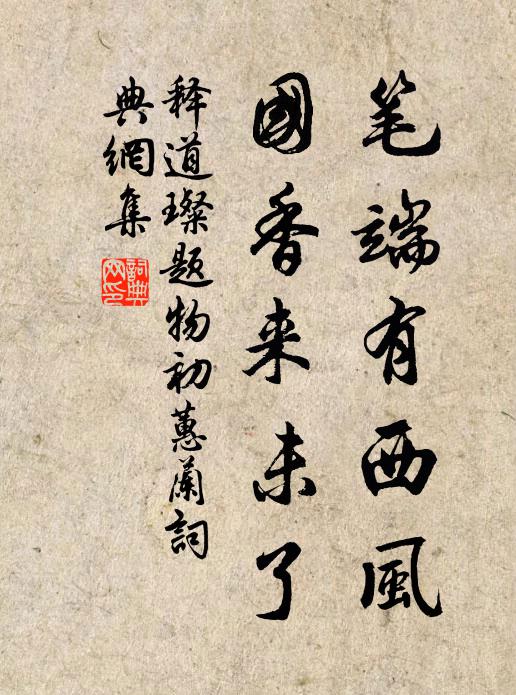 笔端有西風
國香来未了
释道璨题物初蕙蘭詞
典網集
詞典
网印